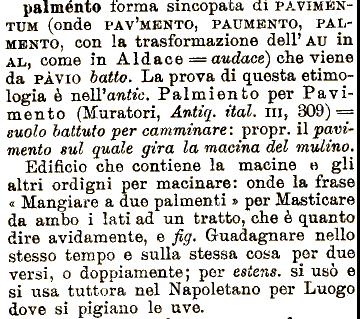 palménto forma sincopata di PAVIMEN-
TUM (onde PAV'MENTO, PAUMENTO, PAL-
MENTO, con la trasformazione dell' AU in
AL, come in Aldace = audace) che viene
da PÀVIO batto. La prova di questa etimo-
logia è nell'antic. Palmiento per Pavi-
mento (Muratori, Antiq. ital. III, 309) =
suolo battuto per camminare: propr. il pavi-
mento sul quale gira la macina del mulino.
Edificio che contiene la macine e gli
altri ordigni per macinare: onde la frase
« Mangiare a due palmenti » per Masticare
da ambo i lati ad un tratto, che è quanto
dire avidamente, e fig. Guadagnare nello
stesso tempo e sulla stessa cosa per due
versi, o doppiamente; per estens. si usò e
si usa tuttora nel Napoletano per Luogo
dove si pigiano le uve.